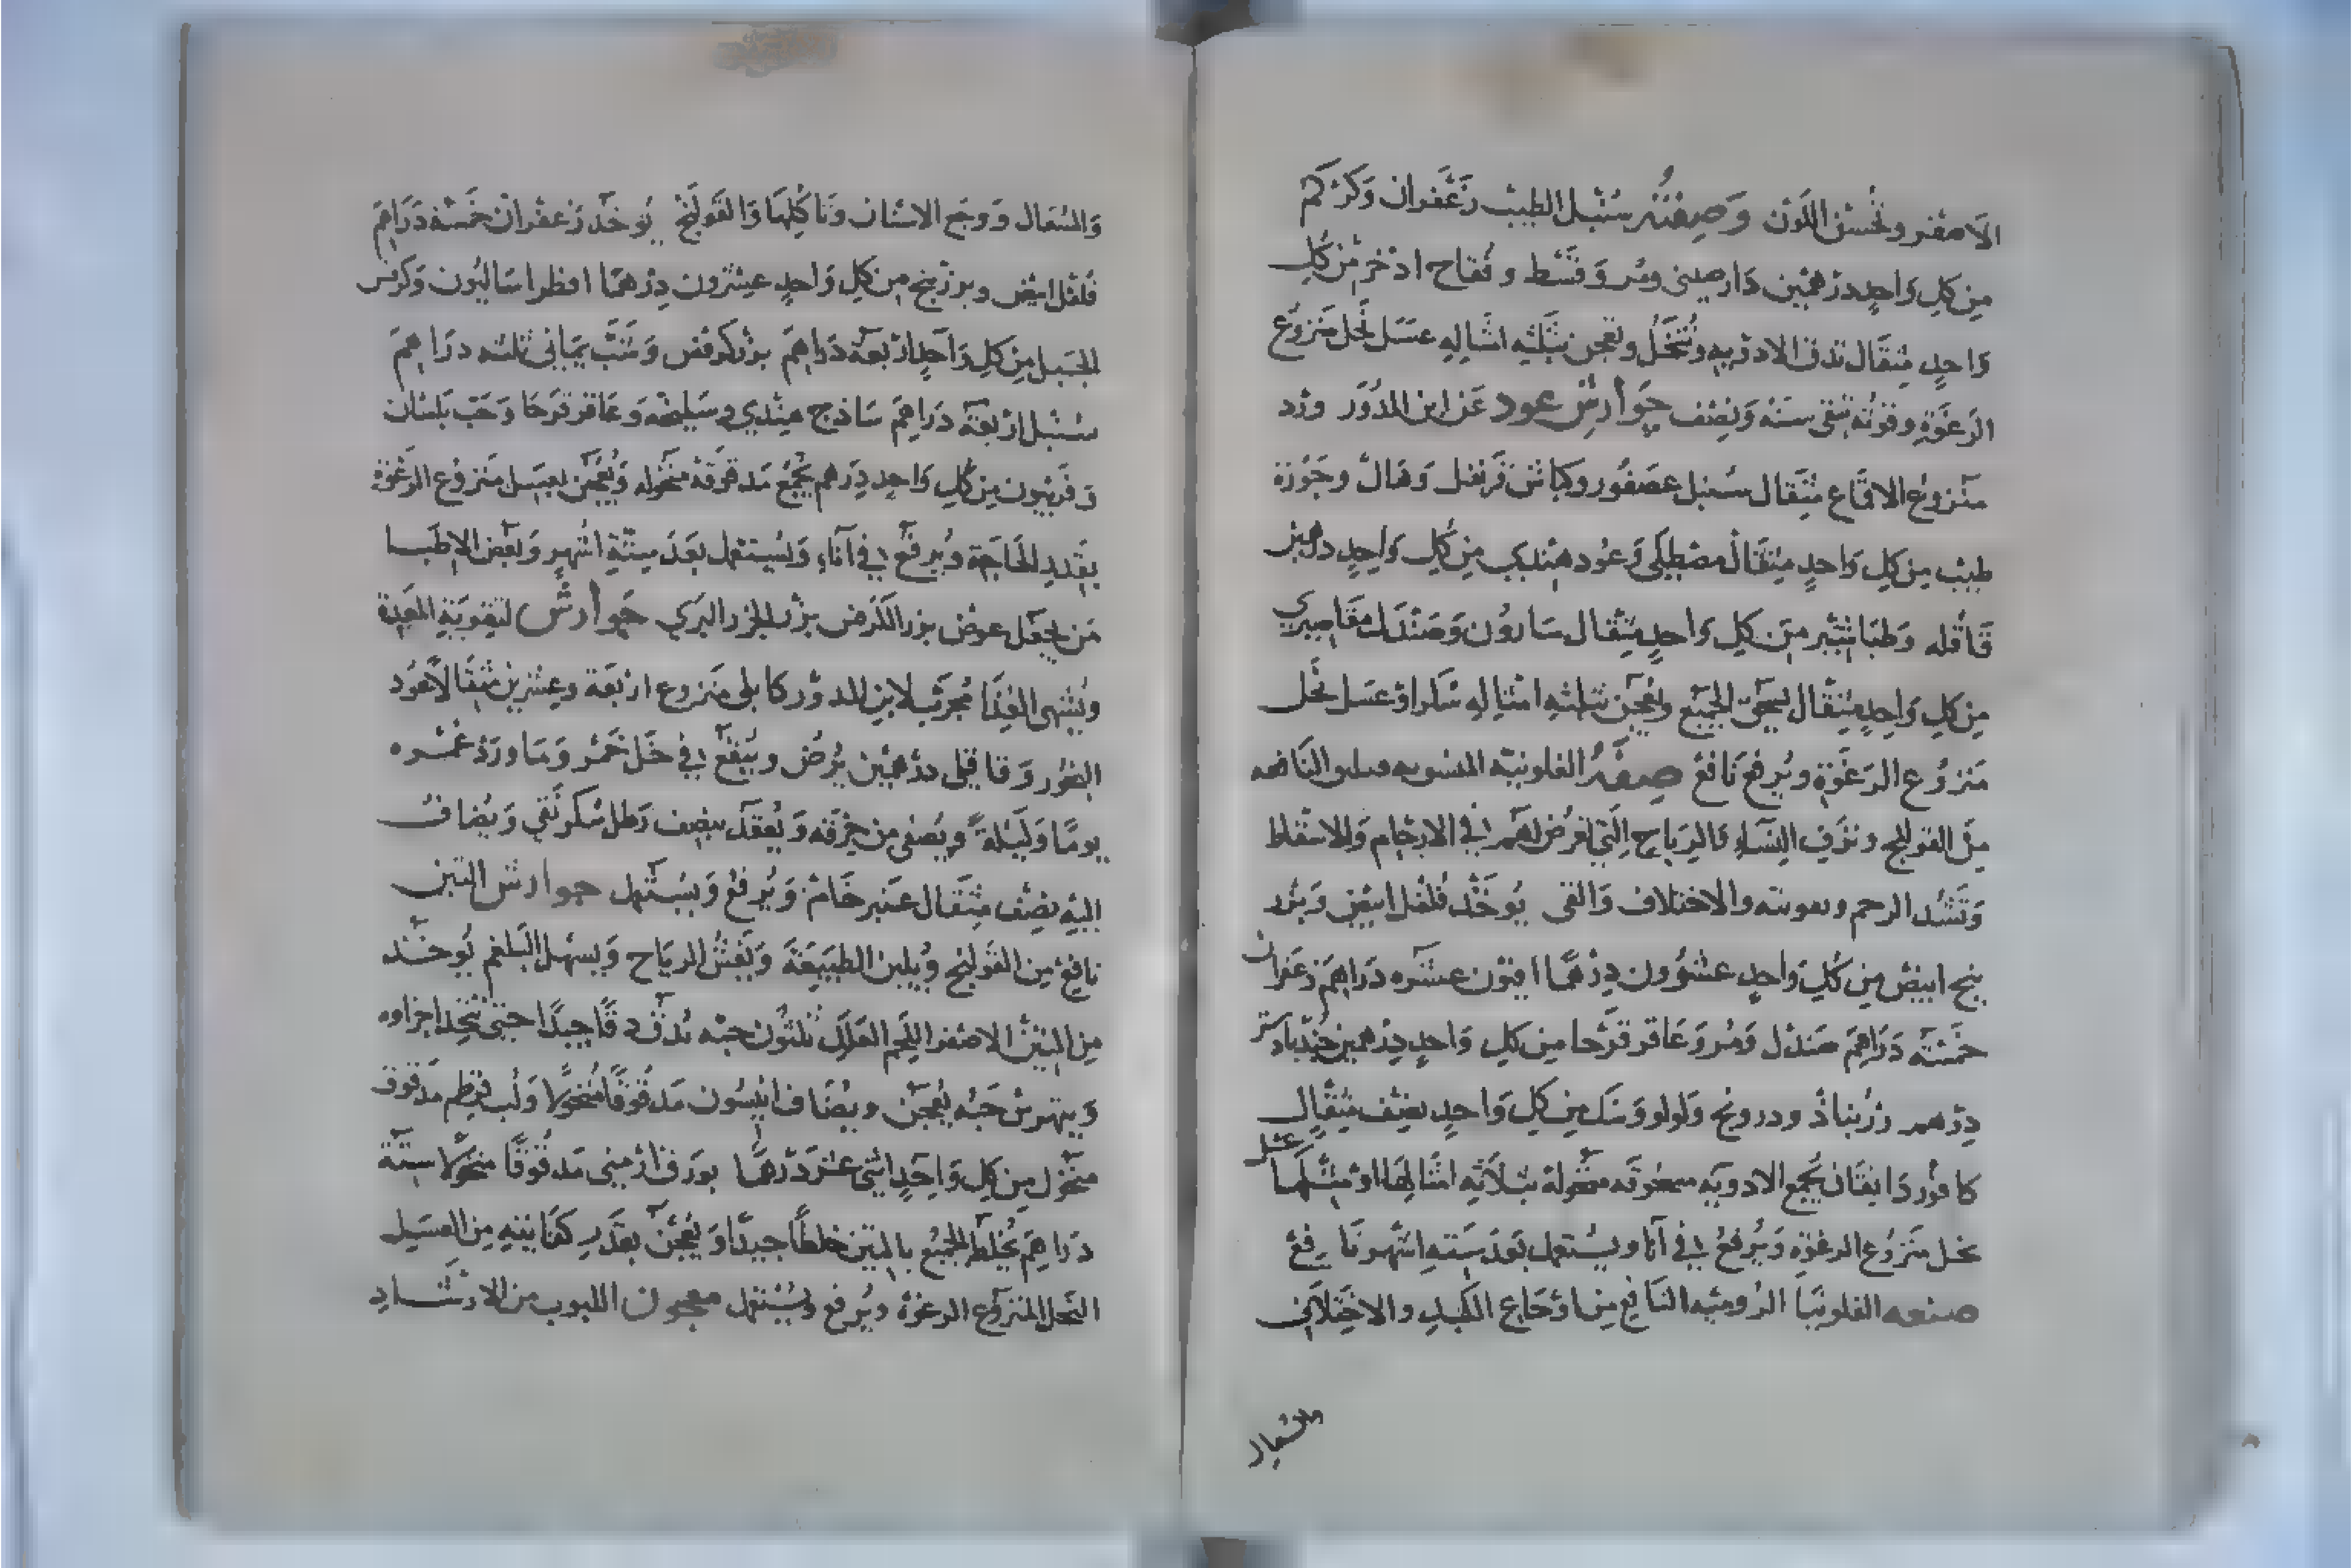 الاصفر ويحسن اللون وصفته سنبل الطيب زعفران وكركم
من كل واحد درهمين دارصيني ومر وقسط وفقاح اذخر من كل
واحد مثقال تدق الادويه وتنخل وتعجن بثلثه امثاله عسل نحل منزوع
الرغوة وقوته تبقى سنة ونصف جوارش عود عن ابن المدور ورد
منزوع الاقماع مثقال سنبل عصفور وكباش قرنفل وهال وجوزة
طيب من كل واحد مثقال مصطكى وعود هندي من كل واحد درهمين
قاقله وطباشير من كل واحد مثقال سارون وصندل مقاصيري
من كل واحد مثقال يسحق الجميع ويعجن بثلثه امثاله سكر او عسل نحل
منزوع الرغوة ويرفع نافع صفة الفلونيه النافعه
من القولنج ونزف النساء والرياح التي تعرض لهم في الارحام والاسقاط
وتشد الرحم والاختلاف والقي يوخذ فلفل ابيض وبزر
بنج ابيض من كل واحد عشرون درهما افيون عشره دراهم زعفران
خمسة دراهم صندل ومر وعاقر قرحا من كل واحد درهمين جندبادستر
درهم زرنباذ ودرونج ولولو ومسك من كل واحد نصف مثقال
كافور دانقان تجمع الادويه مسحوقه منخولة بثلاثه امثالها او مثلها عسل
نحل منزوع الرغوه ويرفع في انا ويستعمل بعد سته اشهر نافع
صنعه الفلونيا الروميه النافع من اوجاع الكبد والاختلاف
والسعال
والسعال ووجع الاسنان وتاكلها والقولنج يوخذ زعفران خمسة دراهم
فلفل ابيض وبزر بنج من كل واحد عشرون درهما افطراساليون وكرفس
الجبل من كل واحد اربعة دراهم بزر كرفس وشب يماني ثلثه دراهم
سنبل اربعة دراهم ساذج هندي وسليخه وعاقر قرحا وحب بلسان
وفربيون من كل واحد درهم يجمع مدقوقة منخوله ويعجن بعسل منزوع الرغوة
بقدر الحاجة ويرفع في اناء ويستعمل بعد ستة اشهر وبعض الاطبا
من يجعل عوض بزر الكرفس بزر الجزر البري جوارش لتقوية المعدة
ويشهي الغذا مجرب لابن المدور كابلي منزوع اربعة وعشرين مثقالا عود
البخور وقاقلي درهمين يرض وينقع في خل خمر وما ورد غمره
يوما وليلة ويصفى من خرقه ويعقد بنصف رطل سكر نقي ويضاف
اليه نصف مثقال عنبر خام ويرفع ويستعمل جوارش التين
نافع من القولنج ويلين الطبيعة ويفش الرياح ويسهل البلغم يوخذ
من التين الاصفر اللحم ثلثون حبه تدق دقا جيدا حتى تنحل اجزاوه
ويتهرس حبه يعجن ويضاف انيسون مدقوقا منخولا ولب قرطم مدقوق
منخول من كل واحد اثني عشر درهما بورق ارمني مدقوقا منخولا ستة
دراهم يخلط الجميع بالتين خلطا جيدا ويعجن بقدر كفايته من العسل
النحل المنزوع الرغوة ويرفع ويستعمل معجون اللبوب من الارشاد